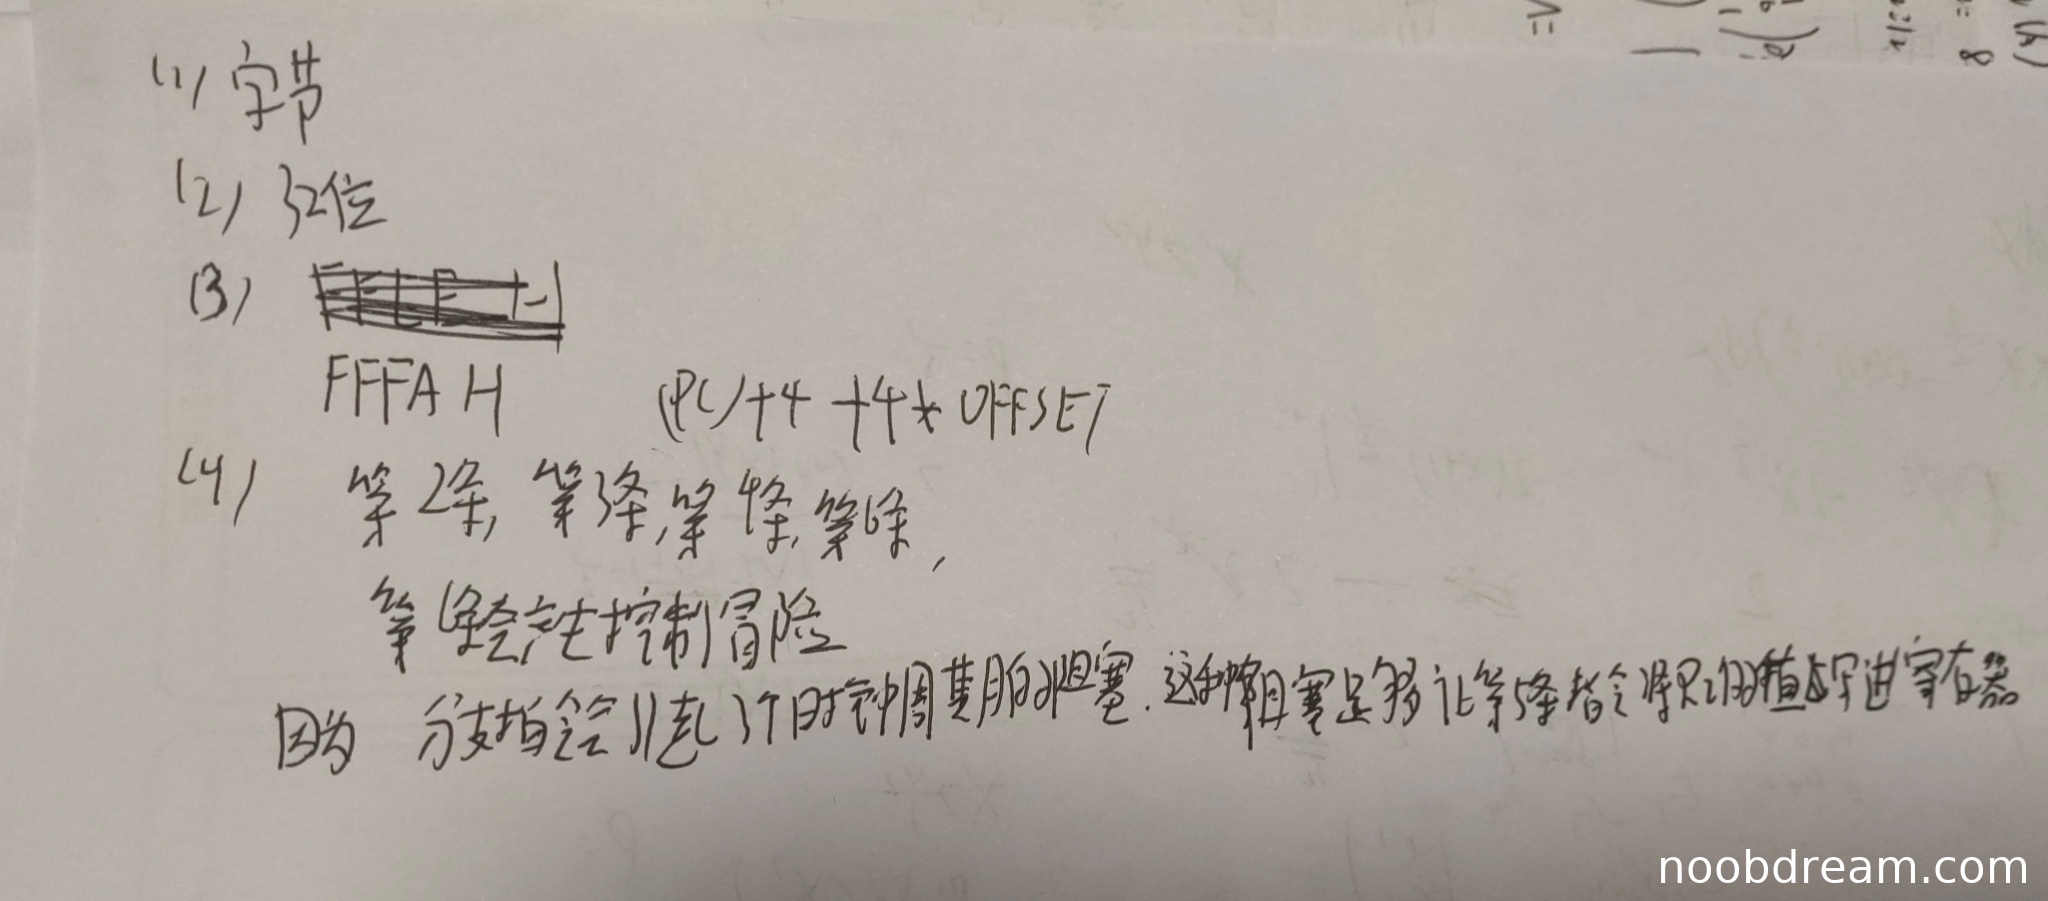 (1) 字节
(2) 32位
(3)
FFFA H (PC)+4 +4* OFFSET
(4) 第2条, 第3条, 第4条, 第6条,
第6条会产生控制冒险
因为 分支指令会引起3个时钟周期的阻塞. 这种阻塞足够让第5条指令将R2的值写进寄存器
noobdream.com